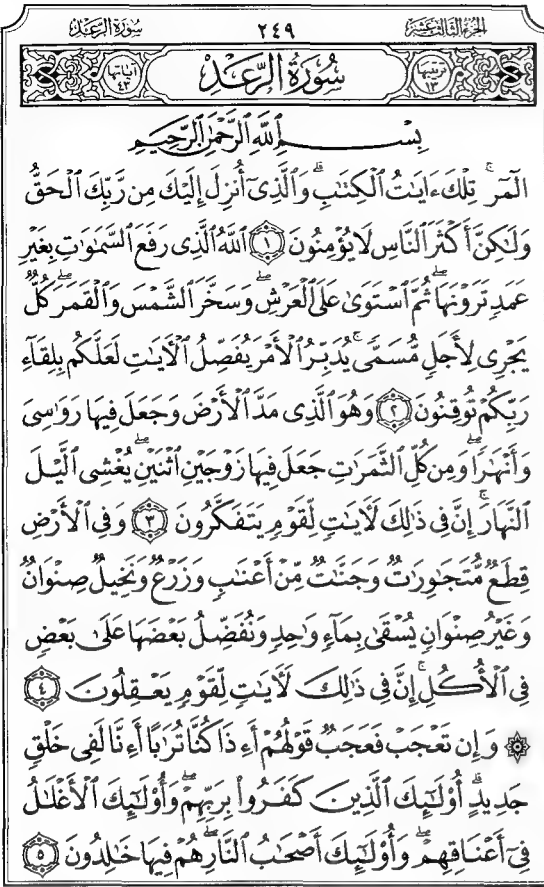 سورة الرعد ٢٤٩ الجزء الثالث عشر
ترتيبها ١٣ سُورَةُ الرَّعۡدِ آياتها ٤٣
بِسۡمِ ٱللَّهِ ٱلرَّحۡمَٰنِ ٱلرَّحِيمِ
الٓمٓرۚ تِلۡكَ ءَايَٰتُ ٱلۡكِتَٰبِۗ وَٱلَّذِيٓ أُنزِلَ إِلَيۡكَ مِن رَّبِّكَ ٱلۡحَقُّ
وَلَٰكِنَّ أَكۡثَرَ ٱلنَّاسِ لَا يُؤۡمِنُونَ ١ ٱللَّهُ ٱلَّذِي رَفَعَ ٱلسَّمَٰوَٰتِ بِغَيۡرِ
عَمَدٖ تَرَوۡنَهَاۖ ثُمَّ ٱسۡتَوَىٰ عَلَى ٱلۡعَرۡشِۖ وَسَخَّرَ ٱلشَّمۡسَ وَٱلۡقَمَرَۖ كُلّٞ
يَجۡرِي لِأَجَلٖ مُّسَمّٗىۚ يُدَبِّرُ ٱلۡأَمۡرَ يُفَصِّلُ ٱلۡأٓيَٰتِ لَعَلَّكُم بِلِقَآءِ
رَبِّكُمۡ تُوقِنُونَ ٢ وَهُوَ ٱلَّذِي مَدَّ ٱلۡأَرۡضَ وَجَعَلَ فِيهَا رَوَٰسِيَ
وَأَنۡهَٰرٗاۖ وَمِن كُلِّ ٱلثَّمَرَٰتِ جَعَلَ فِيهَا زَوۡجَيۡنِ ٱثۡنَيۡنِۖ يُغۡشِي ٱلَّيۡلَ
ٱلنَّهَارَۚ إِنَّ فِي ذَٰلِكَ لَأٓيَٰتٖ لِّقَوۡمٖ يَتَفَكَّرُونَ ٣ وَفِي ٱلۡأَرۡضِ
قِطَعٞ مُّتَجَٰوِرَٰتٞ وَجَنَّٰتٞ مِّنۡ أَعۡنَٰبٖ وَزَرۡعٞ وَنَخِيلٞ صِنۡوَانٞ
وَغَيۡرُ صِنۡوَانٖ يُسۡقَىٰ بِمَآءٖ وَٰحِدٖ وَنُفَضِّلُ بَعۡضَهَا عَلَىٰ بَعۡضٖ
فِي ٱلۡأُكُلِۚ إِنَّ فِي ذَٰلِكَ لَأٓيَٰتٖ لِّقَوۡمٖ يَعۡقِلُونَ ٤
۞ وَإِن تَعۡجَبۡ فَعَجَبٞ قَوۡلُهُمۡ أَءِذَا كُنَّا تُرَٰبًا أَءِنَّا لَفِي خَلۡقٖ
جَدِيدٍۗ أُوْلَٰٓئِكَ ٱلَّذِينَ كَفَرُواْ بِرَبِّهِمۡۖ وَأُوْلَٰٓئِكَ ٱلۡأَغۡلَٰلُ
فِيٓ أَعۡنَاقِهِمۡۖ وَأُوْلَٰٓئِكَ أَصۡحَٰبُ ٱلنَّارِۖ هُمۡ فِيهَا خَٰلِدُونَ ٥